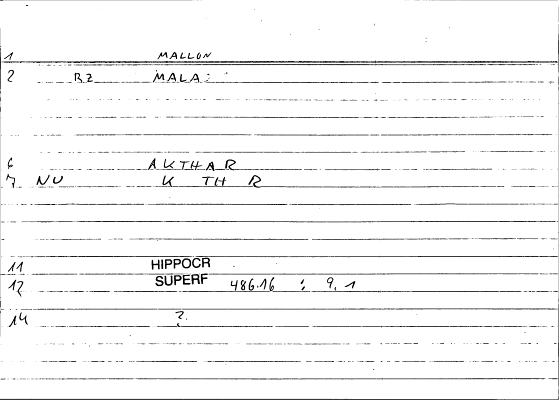 1 MALLON
2 RZ MALA:
6 AKTHAR
7 NU K TH R
11 HIPPOCR
12 SUPERF 486.16 : 9, 1
14 ?